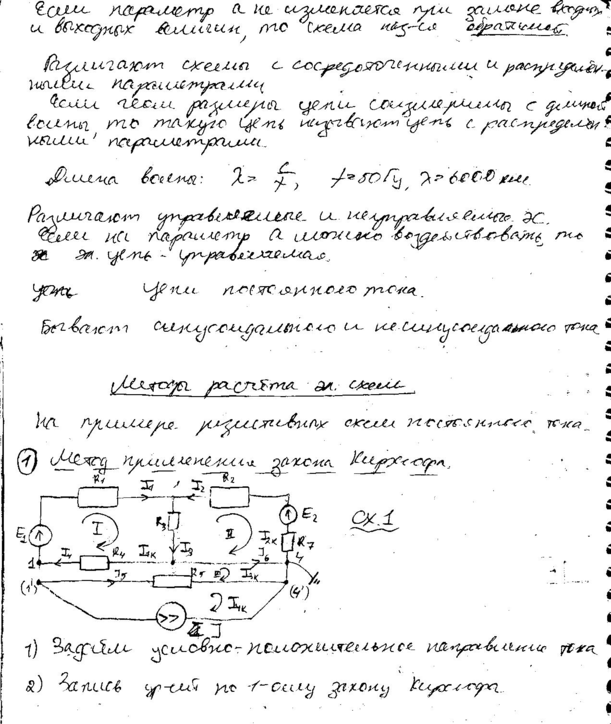 Если параметр a не изменяется при замене входных
и выходных величин, то схема наз-ся обратимой.
Различают схемы с сосредоточенными и распределён-
ными параметрами
Если геом размеры цепи соизмеримы с длиной
волны, то такую цепь называют цепь с распределен-
ными параметрами.
Длина волны: λ = c/f, f=50Гц, λ=6000 км.
Различают управляемые и неуправляемые эс.
Если на параметр a можно воздействовать, то
эл. цепь - управляемая.
Цепи постоянного тока.
Бывают синусоидального и несинусоидального тока
Методы расчёта эл. схем
На примере резистивных схем постоянного тока.
1 Метод применения закона Кирхгофа.
R1 I1 I2 R2
E1 I R3 II E2
сх.1
I4 R4 I1к I3 I6 I2к R7
1 4
(1') I5 R5 I3к (4')
I4к
J
1) Задаём условно-положительное направление тока
2) Запись ур-ий по 1-ому закону Кирхгофа